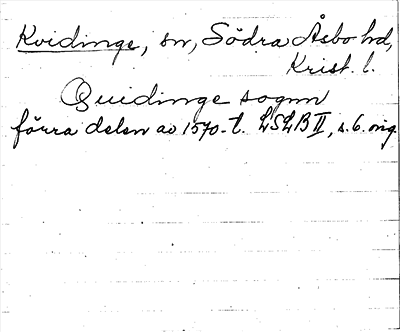 Kvidinge, sn, Södra Åsbo hd,
Krist. l.
Quidinge sognn
förra delen av 1570-t. LSLB II, s. 6. orig.